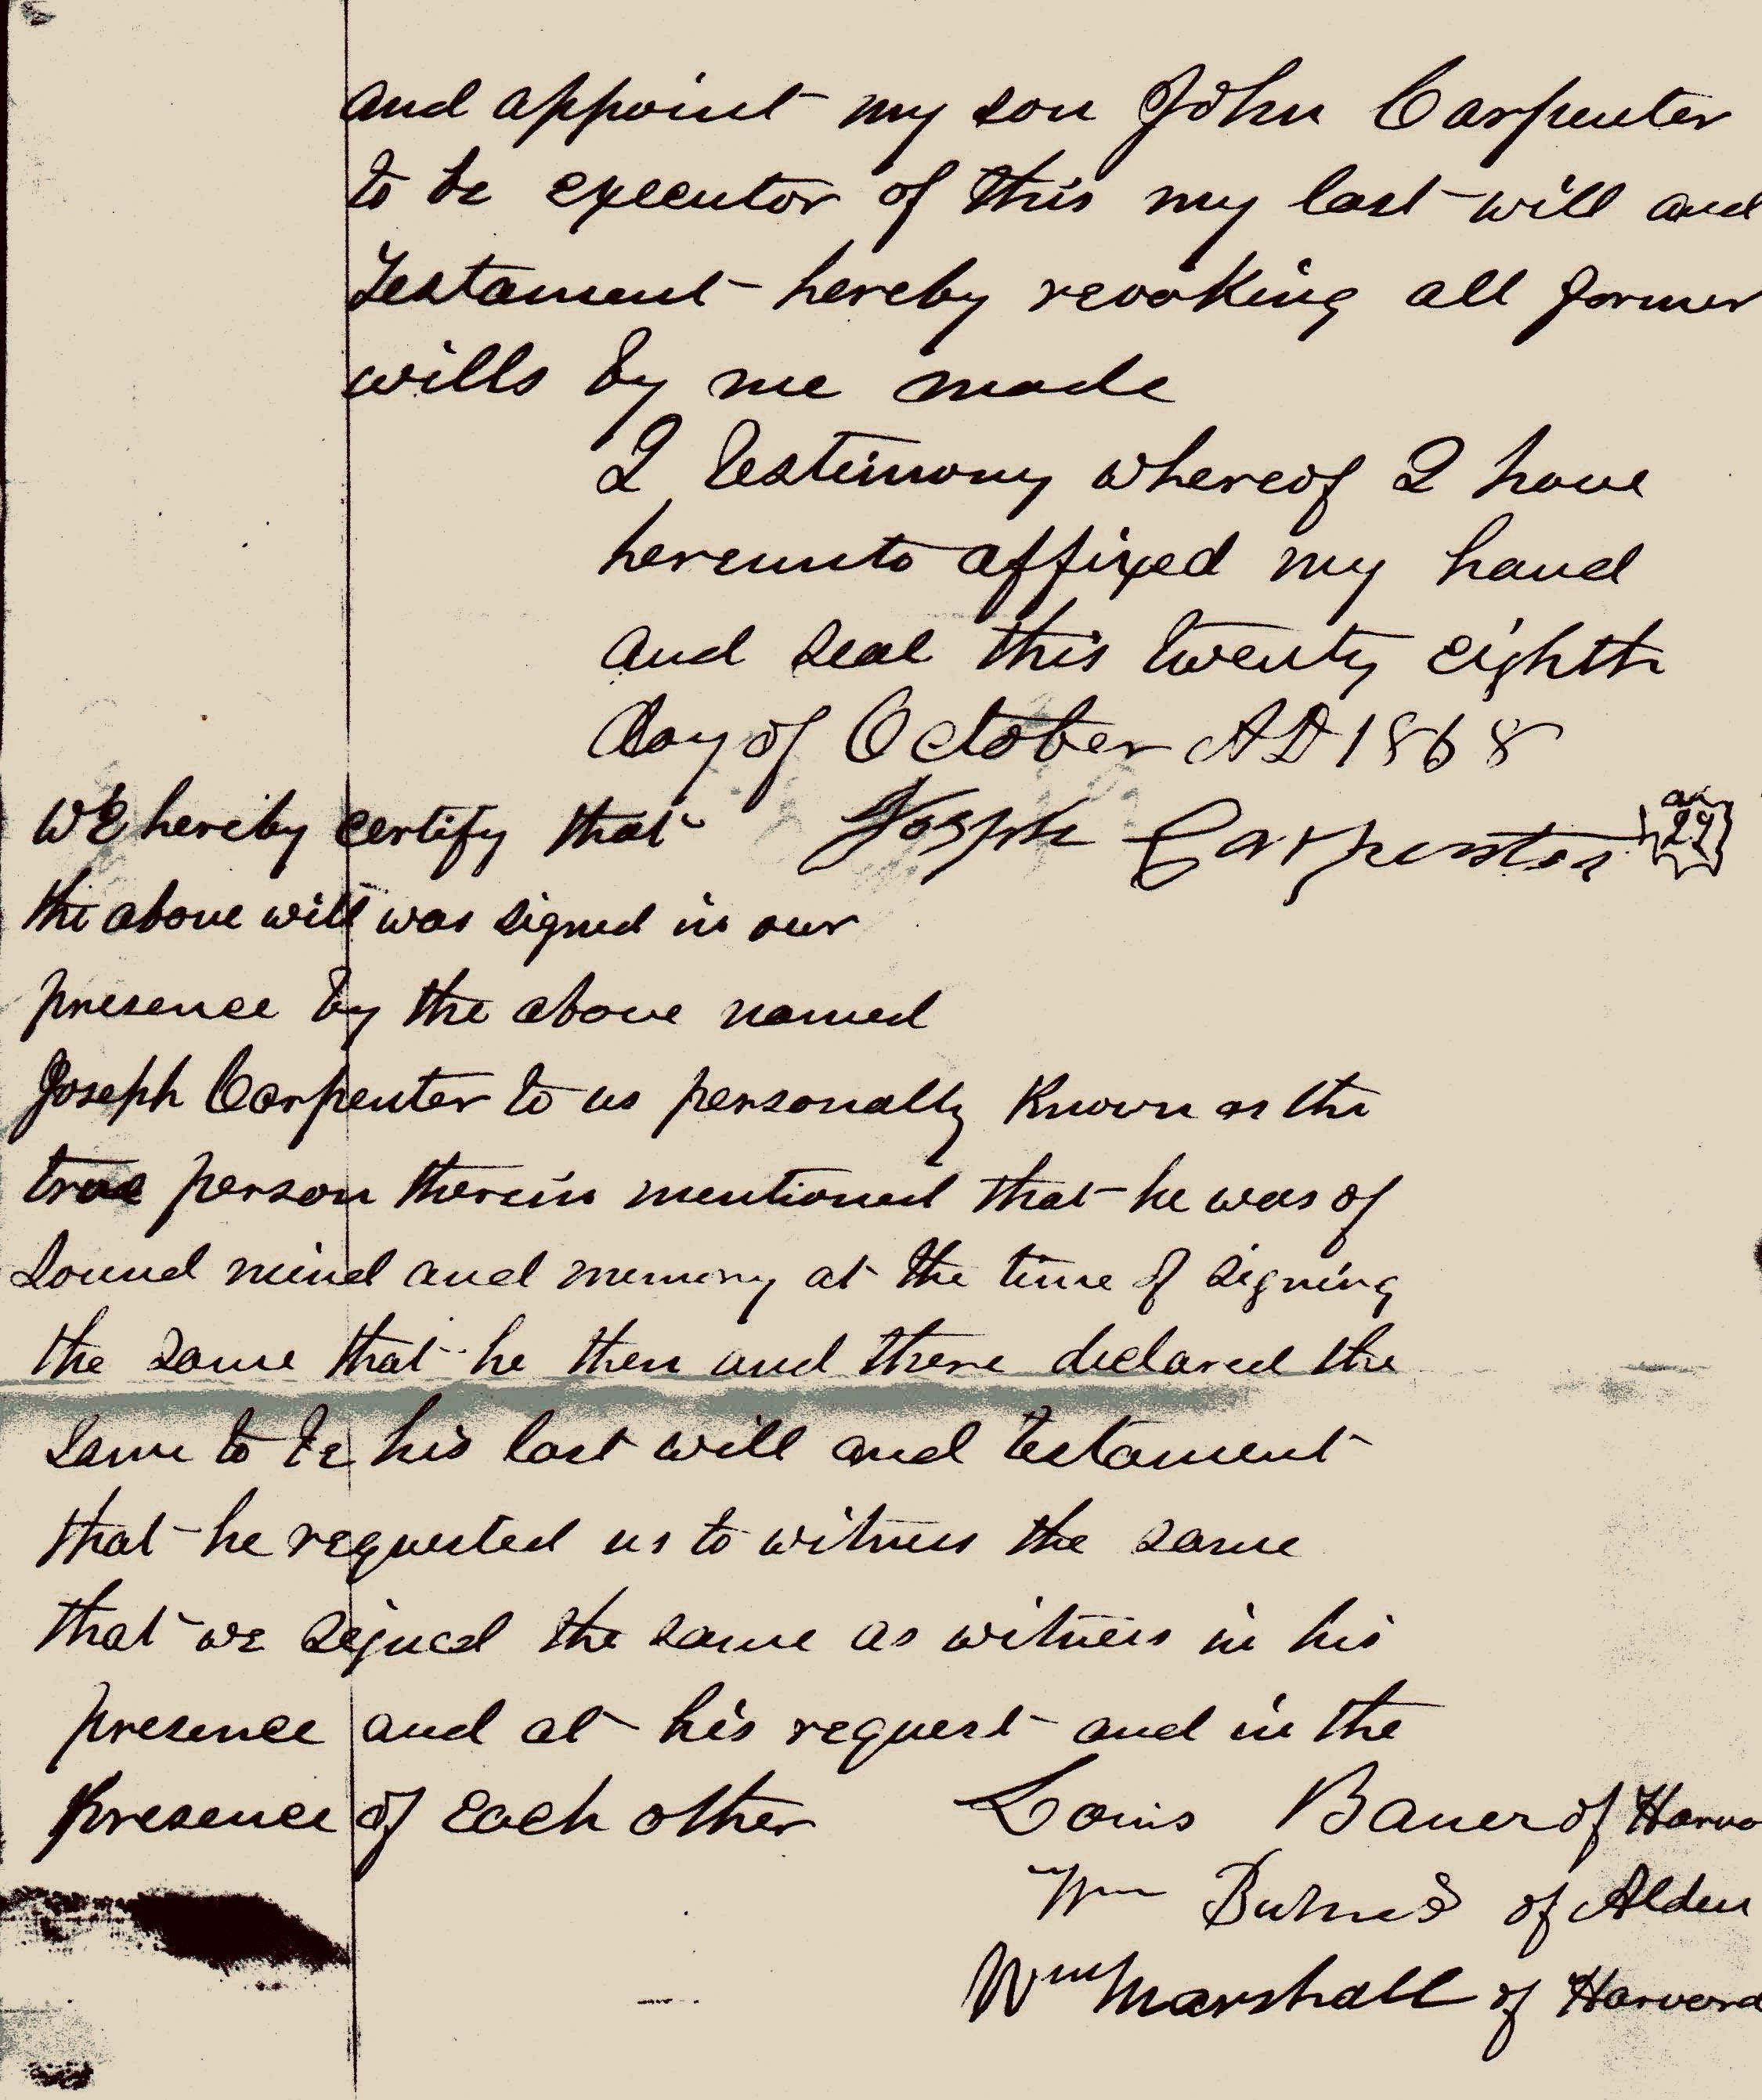 and appoint my son John Carpenter
to be executor of this my last will and
Testament hereby revoking all former
wills by me made
I testimony whereof I have
hereunto affixed my hand
and seal this twenty eighth
day of October AD 1868
Joseph Carpenter
We hereby certify that
the above will was signed in our
presence by the above named
Joseph Carpenter to us personally known as the
true person therein mentioned that he was of
sound mind and memory at the time of signing
the same that he then and there declared the
same to be his last will and testament
that he requested us to witness the same
that we signed the same as witness in his
presence and at his request and in the
presence of each other
Louis Bauer of Harva
Wm of Alden
Wm Marshall of Harvard